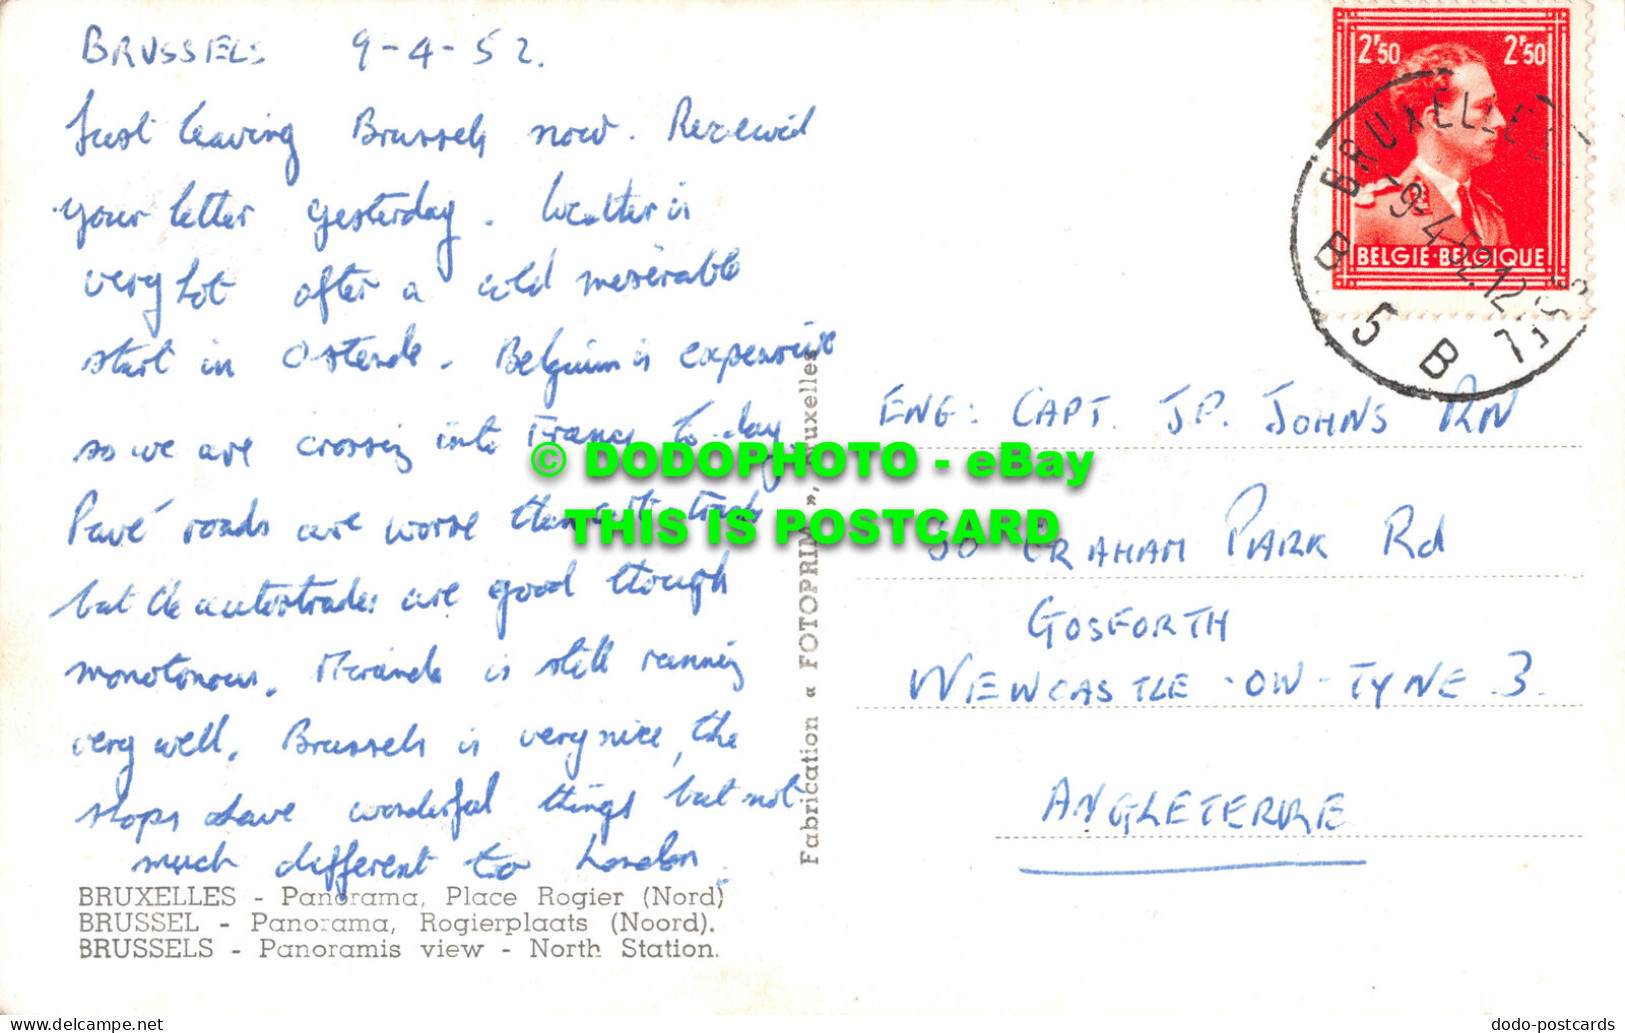 BRUSSELS 9-4-52.
Just leaving Brussels now. Received
your letter yesterday. Weather is
very hot after a cold miserable
start in Ostende. Belgium is expensive
so we are crossing into France to-day.
Pavé roads are worse than
but the autostrades are good though
monotonous. is still running
very well. Brussels is very nice, the
shops have wonderful things but not
much different to London.
BRUXELLES - Panorama, Place Rogier (Nord)
BRUSSEL - Panorama, Rogierplaats (Noord).
BRUSSELS - Panoramis view - North Station.
Fabrication « FOTOPRIM », Bruxelles
2F50 2F50
BELGIE·BELGIQUE
BRUXELLES
-9-4-52.12
B 5 B
ENG: CAPT. J.P. JOHNS RN
GRAHAM PARK Rd
GOSFORTH
NEWCASTLE-ON-TYNE 3.
ANGLETERRE
© DODOPHOTO - eBay
THIS IS POSTCARD
dodo-postcards